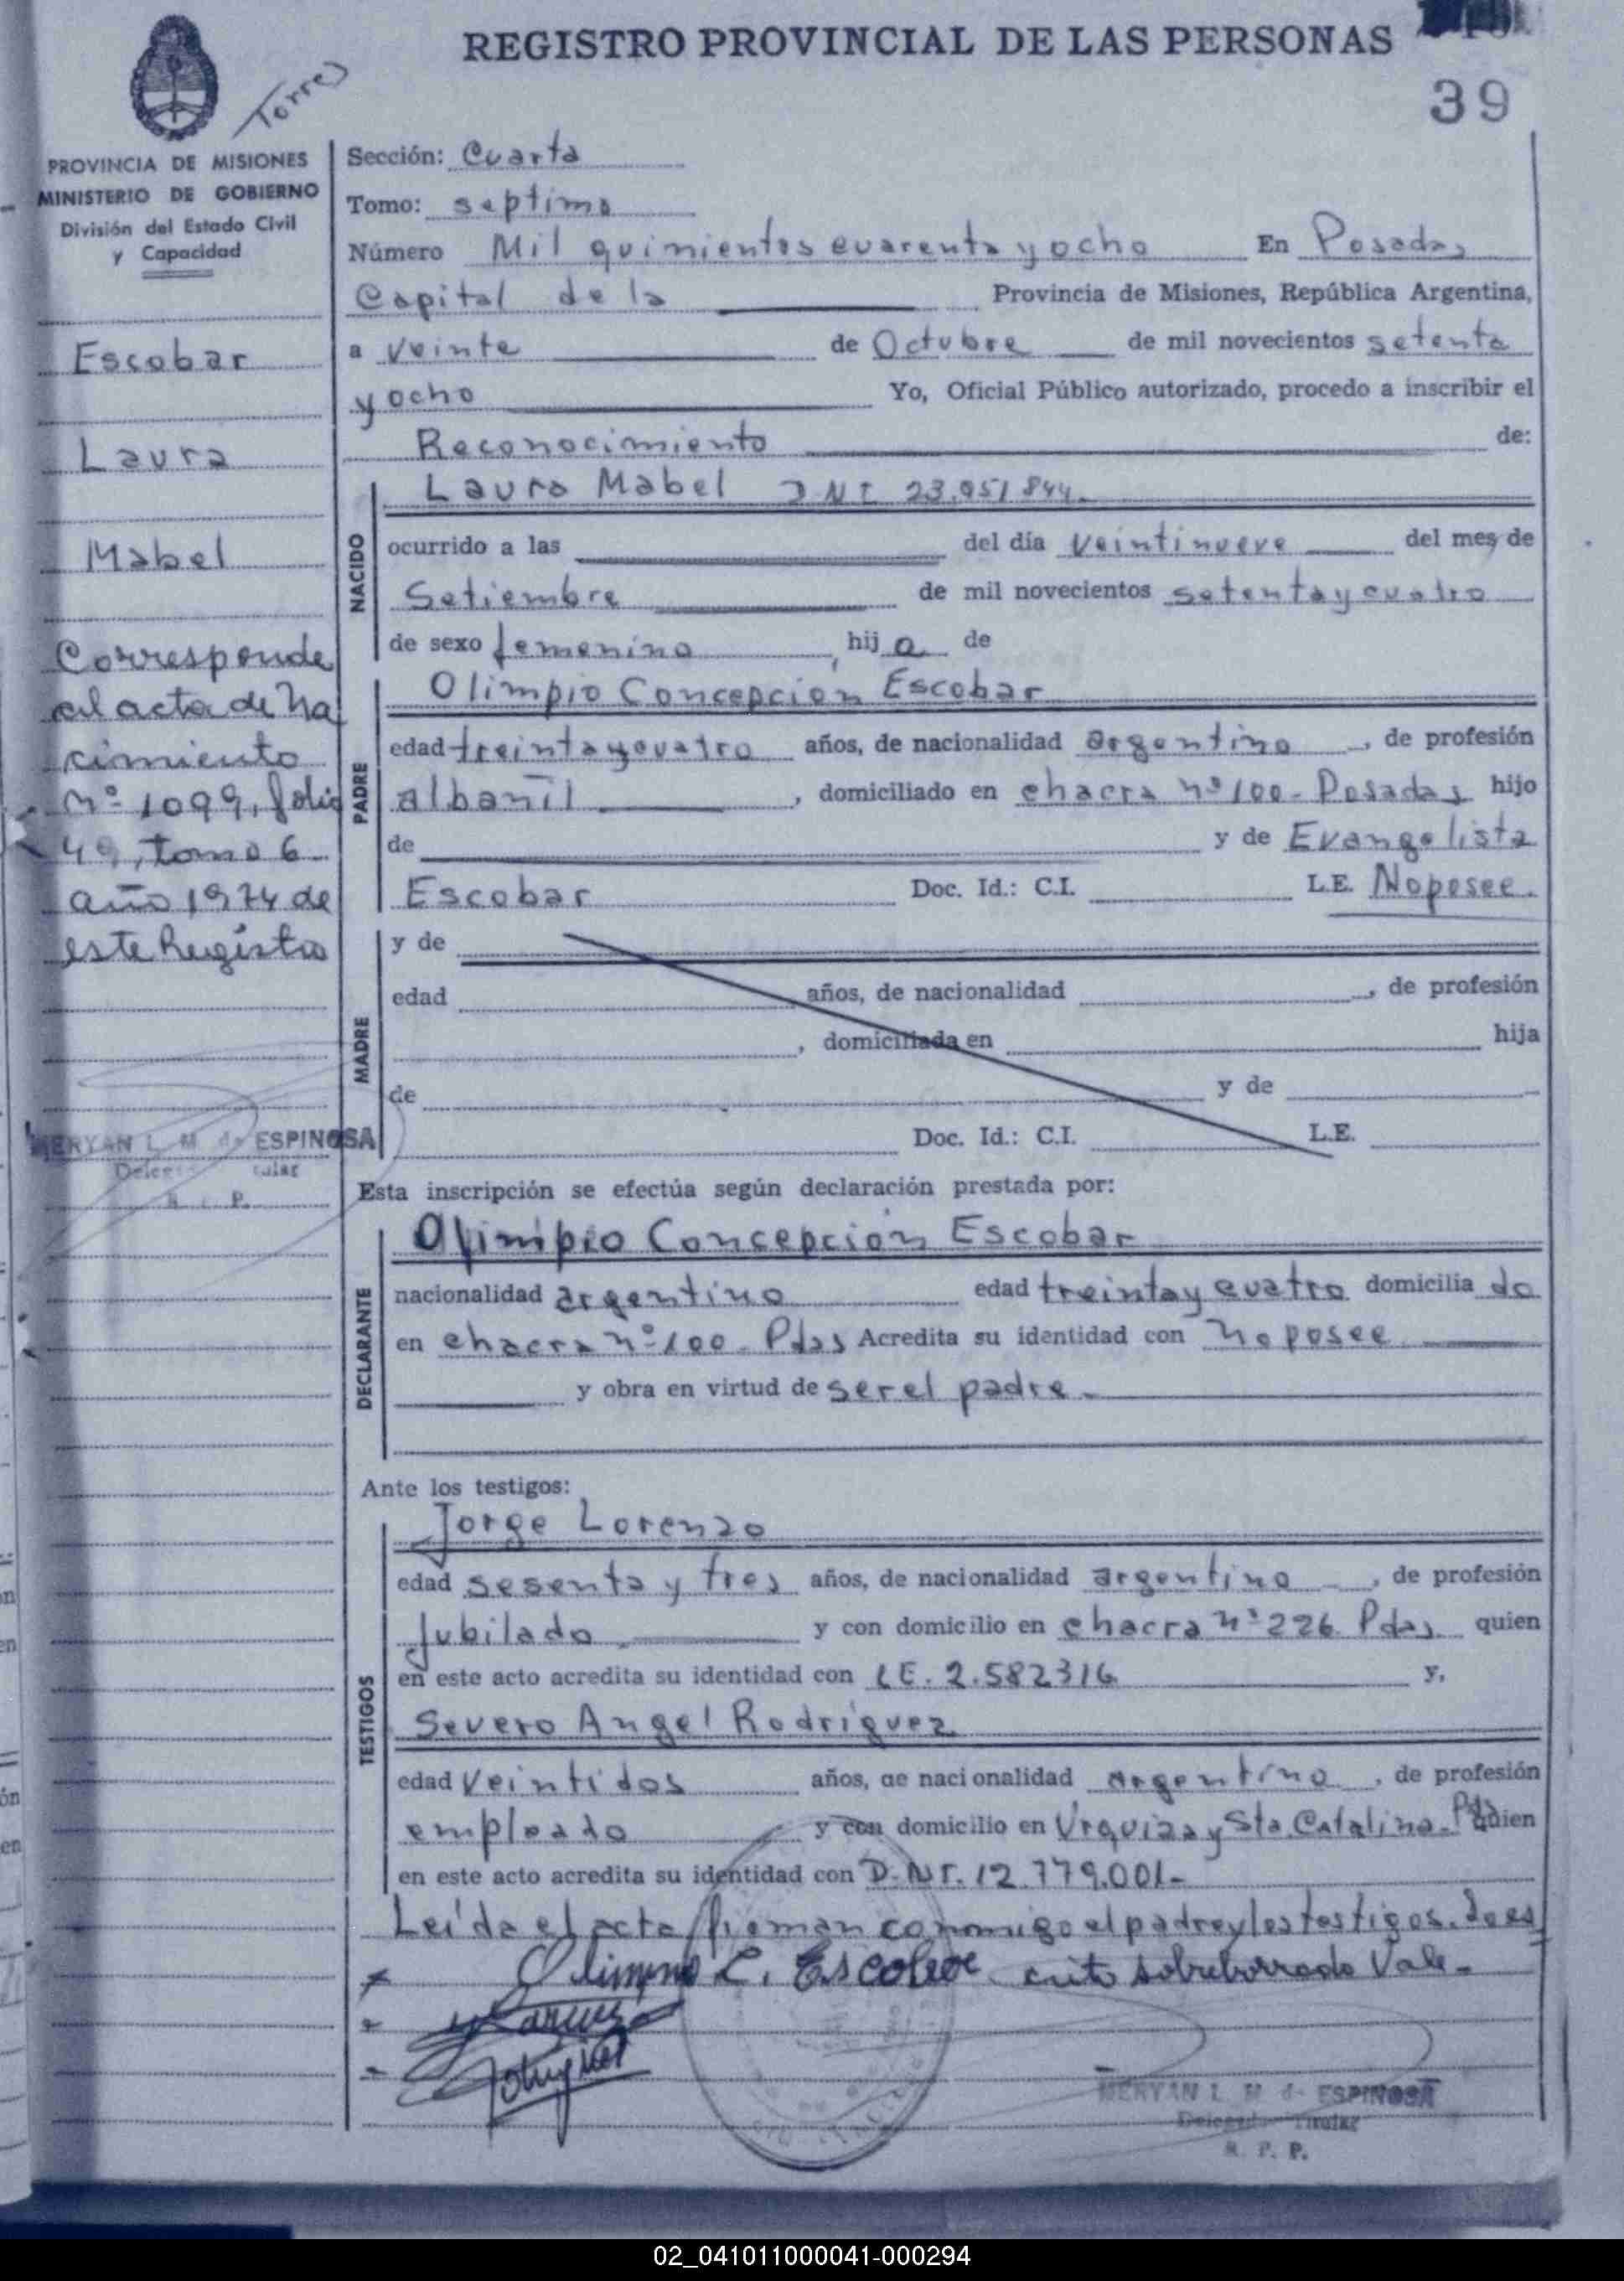 REGISTRO PROVINCIAL DE LAS PERSONAS
39
Torres
PROVINCIA DE MISIONES
MINISTERIO DE GOBIERNO
División del Estado Civil
y Capacidad
Escobar
Laura
Mabel
Corresponde
al acta de na
cimiento
Nº 1099, folio
49, tomo 6
año 1974 de
este Registro
MERYAN L. M de ESPINOSA
R. P.
Sección: Cuarta
Tomo: septimo
Número Mil quinientos cuarenta y ocho En Posadas
Capital de la Provincia de Misiones, República Argentina,
a veinte de Octubre de mil novecientos setenta
y ocho Yo, Oficial Público autorizado, procedo a inscribir el
Reconocimiento de:
NACIDO
Laura Mabel DNI 23.951844.
ocurrido a las del día veintinueve del mes de
Setiembre de mil novecientos setenta y cuatro
de sexo femenino, hij a de
PADRE
Olimpio Concepción Escobar
edad treinta y cuatro años, de nacionalidad argentino, de profesión
albañil, domiciliado en chacra nº 100- Posadas hijo
de y de Evangelista
Escobar Doc. Id.: C.I. L.E. No posee.
MADRE
y de
edad años, de nacionalidad , de profesión
, domiciliada en hija
de y de
Doc. Id.: C.I. L.E.
Esta inscripción se efectúa según declaración prestada por:
DECLARANTE
Olimpio Concepción Escobar
nacionalidad argentino edad treinta y cuatro domicilia do
en chacra nº 100- Pdas Acredita su identidad con no posee
y obra en virtud de ser el padre.
Ante los testigos:
TESTIGOS
Jorge Lorenzo
edad sesenta y tres años, de nacionalidad argentino, de profesión
Jubilado y con domicilio en chacra nº 226 Pdas. quien
en este acto acredita su identidad con LE. 2.582316 y,
Severo Angel Rodríguez
edad veintidos años, de nacionalidad argentino, de profesión
empleado y con domicilio en Urquiza y Sta. Catalina- Pdas quien
en este acto acredita su identidad con D.N.I. 12.779.001-
Leída el acta firman conmigo el padre y los testigos. Lo es
Olimpio C. Escobar crito sobreborrado Vale.
MERYAN L. M de ESPINOSA
Delegada Titular
R. P. P.
02_041011000041-000294